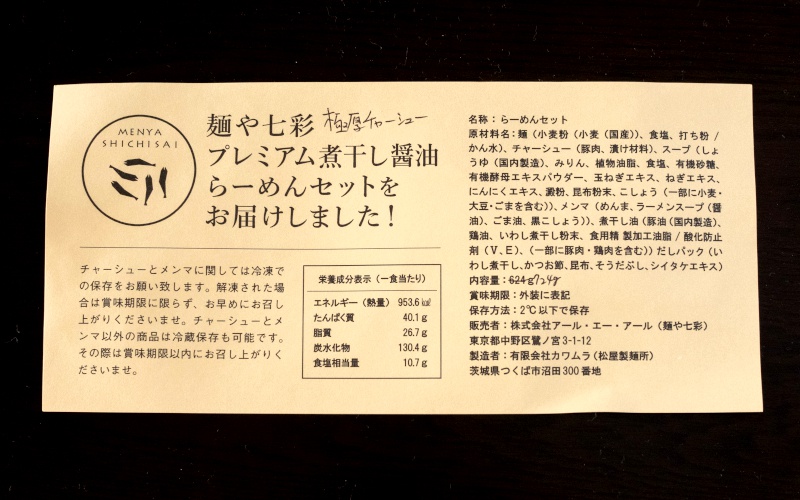 MENYA
SHICHISAI
麺や七彩 極厚チャーシュー
プレミアム煮干し醤油
らーめんセットを
お届けしました!
チャーシューとメンマに関しては冷凍で
の保存をお願い致します。解凍された場
合は賞味期限に限らず、お早めにお召し
上がりくださいませ。チャーシューとメ
ンマ以外の商品は冷蔵保存も可能です。
その際は賞味期限以内にお召し上がりく
ださいませ。
栄養成分表示(一食当たり)
エネルギー(熱量) 953.6㎉
たんぱく質 40.1g
脂質 26.7g
炭水化物 130.4g
食塩相当量 10.7g
名称:らーめんセット
原材料名:麺(小麦粉(小麦(国産))、食塩、打ち粉/
かん水)、チャーシュー(豚肉、漬け材料)、スープ(しょ
うゆ(国内製造)、みりん、植物油脂、食塩、有機砂糖、
有機酵母エキスパウダー、玉ねぎエキス、ねぎエキス、
にんにくエキス、澱粉、昆布粉末、こしょう(一部に小麦・
大豆・ごまを含む))、メンマ(めんま、ラーメンスープ(醤
油)、ごま油、黒こしょう))、煮干し油(豚油(国内製造)、
鶏油、いわし煮干し粉末、食用精製加工油脂/酸化防止
剤(V.E)、(一部に豚肉・鶏肉を含む))だしパック(い
わし煮干し、かつお節、昆布、そうだぶし、シイタケエキス)
内容量:624g724g
賞味期限:外装に表記
保存方法:2℃以下で保存
販売者:株式会社アール・エー・アール(麺や七彩)
東京都中野区鷺ノ宮3-1-12
製造者:有限会社カワムラ(松屋製麺所)
茨城県つくば市沼田300番地